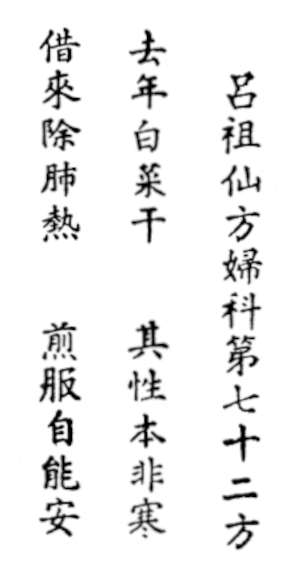 呂祖仙方婦科第七十二方
去年白菜干　其性本非寒
借來除肺熱　煎服自能安